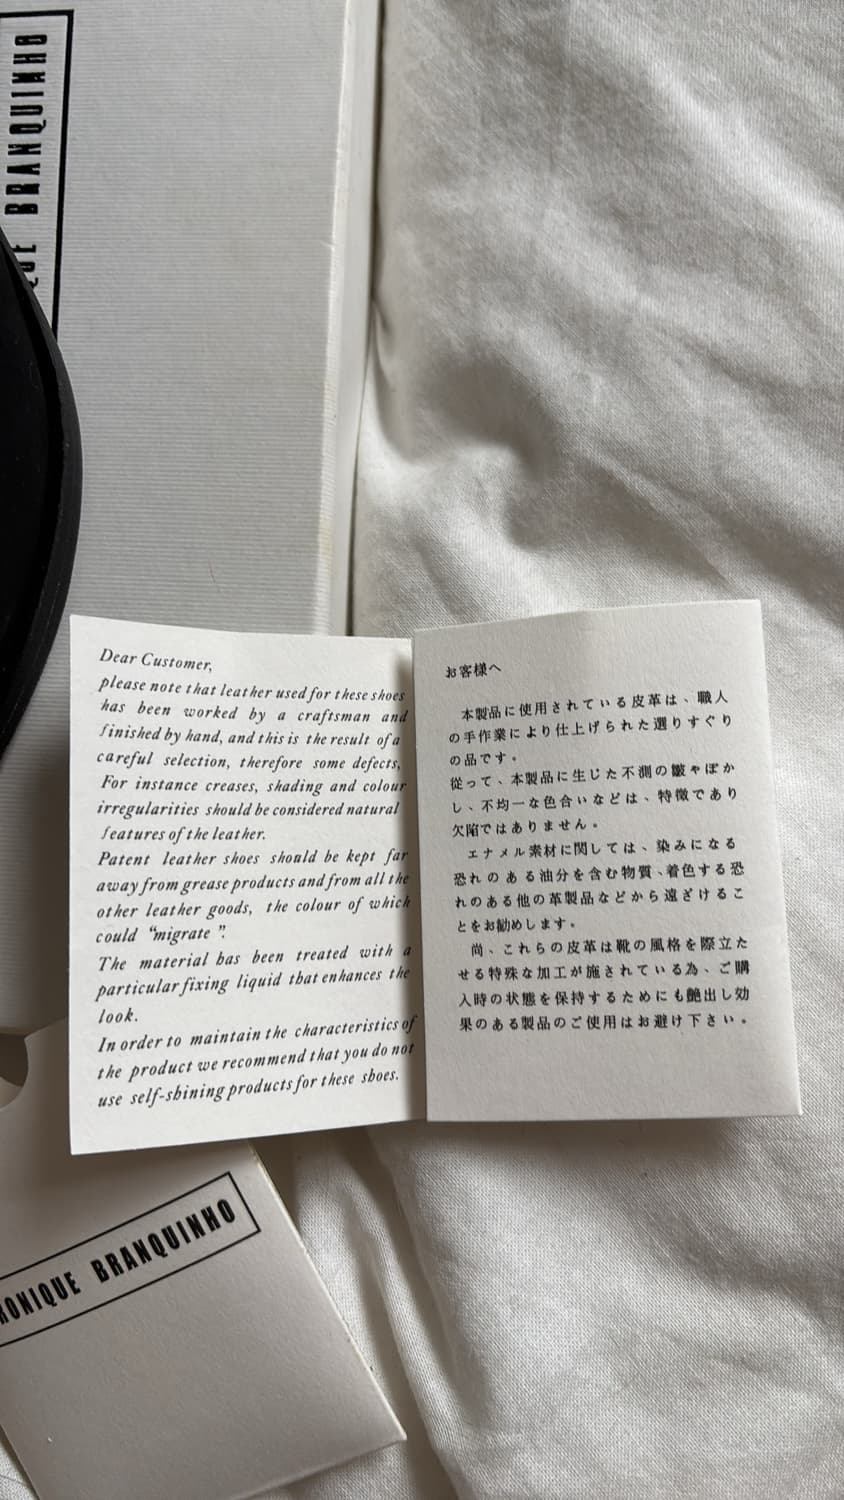 BRANQUINHO
Dear Customer,
please note that leather used for these shoes
has been worked by a craftsman and
finished by hand, and this is the result of a
careful selection, therefore some defects,
For instance creases, shading and colour
irregularities should be considered natural
features of the leather.
Patent leather shoes should be kept far
away from grease products and from all the
other leather goods, the colour of which
could “migrate”.
The material has been treated with a
particular fixing liquid that enhances the
look.
In order to maintain the characteristics of
the product we recommend that you do not
use self-shining products for these shoes.
お客様へ
本製品に使用されている皮革は、職人
の手作業により仕上げられた選りすぐり
の品です。
従って、本製品に生じた不測の皺やぼか
し、不均一な色合いなどは、特徴であり
欠陥ではありません。
エナメル素材に関しては、染みになる
恐れのある油分を含む物質、着色する恐
れのある他の革製品などから遠ざけるこ
とをお勧めします。
尚、これらの皮革は靴の風格を際立た
せる特殊な加工が施されている為、ご購
入時の状態を保持するためにも艶出し効
果のある製品のご使用はお避け下さい。
RONIQUE BRANQUINHO